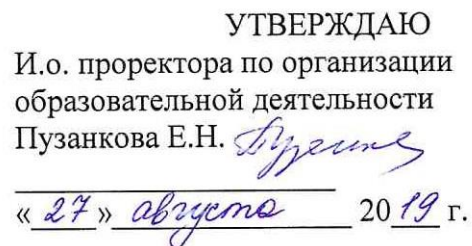 УТВЕРЖДАЮ
И.о. проректора по организации
образовательной деятельности
Пузанкова Е.Н.
« 27 » августа 2019 г.